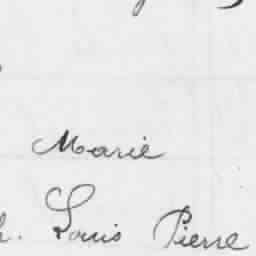 Marie
Louis Pierre